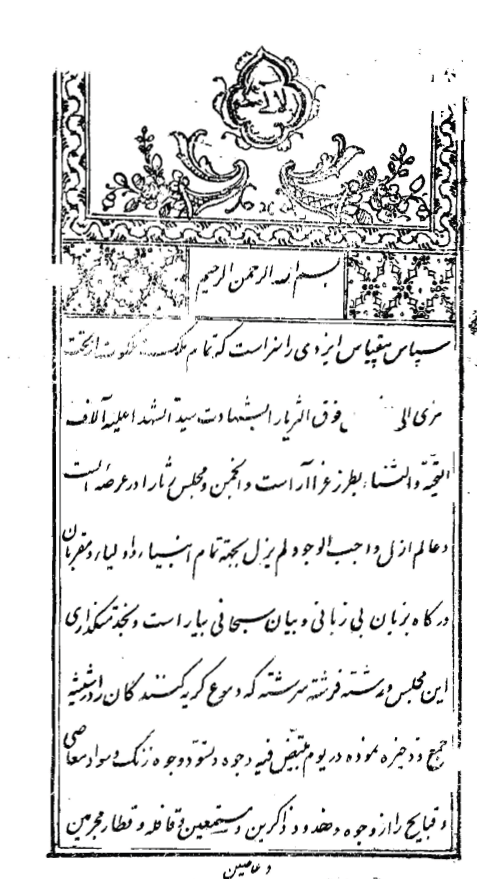 بسم الله الرحمن الرحیم
سپاس بیقیاس ایزدی را سزاست که تمام ملک ملکوت از تحت
ثری الی فوق الثریا را بشهادت سید الشهدا علیه آلاف
التحیة والثناء بطرز عزا آراست و انجمن و مجلس رثا را در عرصه الست
و عالم ازل واجب الوجود لم یزل بجهة تمام انبیاء و اولیاء و مقربان
درکاه بزبان بی زبانی و بیان سبحانی بیاراست و بجهة
این مجلس فرشته سرشته که دموع کریه کنندکان را در شیشه
جمع و ذخیره نموده در یوم تبیّض فیه وجوه و تسوّد وجوه زنک و سواد معاصی
و قبایح را از وجوه و خدود ذاکرین و مستمعین و قافله و قطار مجرمین
و عاصین